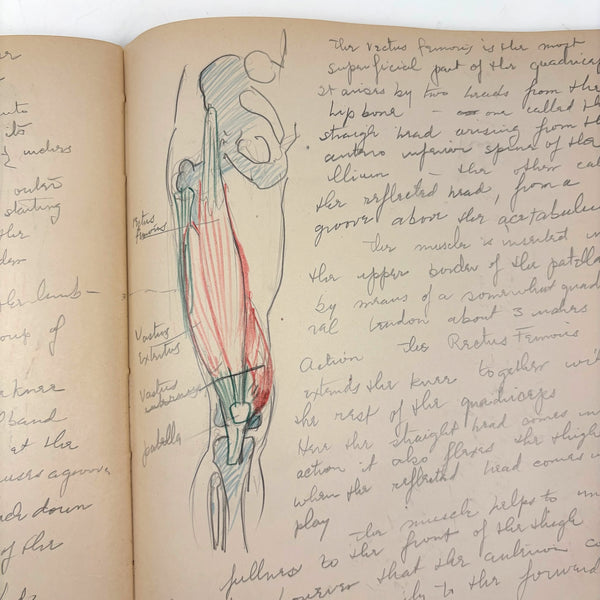 er
into
its
½ inches
outer
starting
the
the limb -
oup of
knee
band
at the
uses a groove
down
of the
rectus
femoris
Vastus
Extertus
Vastus
patella
The rectus femoris is the most
superficial part of the quadricep
It arises by two heads from the
hip bone - one called the
straigh head arising from th
antero inferior spine of the
Illium - the other cal
the reflected head, from a
groove above the acetabulu
The muscle is inserted in
the upper border of the patella
by means of a somewhat quad
ral tendon about 3 inches
Action The Rectus Femoris
extends the knee together wit
the rest of the quadriceps
Here the straight head comes in
action it also flexes the thigh
when the reflected head comes in
play
The muscle helps to
fullness to the front of the thigh
however that the
to the forward